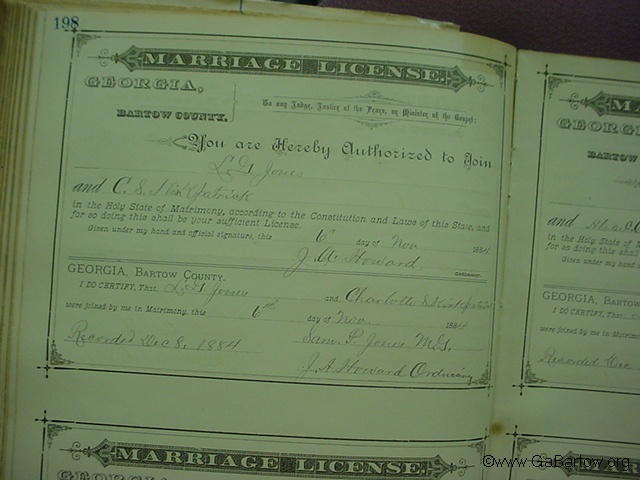 198
MARRIAGE LICENSE.
GEORGIA,
BARTOW COUNTY.
To any Judge, Justice of the Peace, or Minister of the Gospel:
You are Hereby Authorized to Join
Jones
and C. S. Kirkpatrick
in the Holy State of Matrimony, according to the Constitution and Laws of this State, and
for so doing this shall be your sufficient License.
Given under my hand and official signature, this 6th day of Nov 1884
J. A. Howard, Ordinary.
GEORGIA, Bartow County.
I DO CERTIFY, That Jones and Charlotte S Kirkpatrick
were joined by me in Matrimony, this 6th day of Nov. 1884
Recorded Dec 8, 1884
Sam. P. Jones M.G.
J. A. Howard Ordinary
MARRIAGE LICENSE.
GEORGIA
MA
GEORGIA
BARTOW
and
in the Holy State of
for so doing this shall
Given under my hand
GEORGIA, Bartow
I DO CERTIFY, That
were joined by me in
Recorded Dec
MA
©www.GaBartow.org